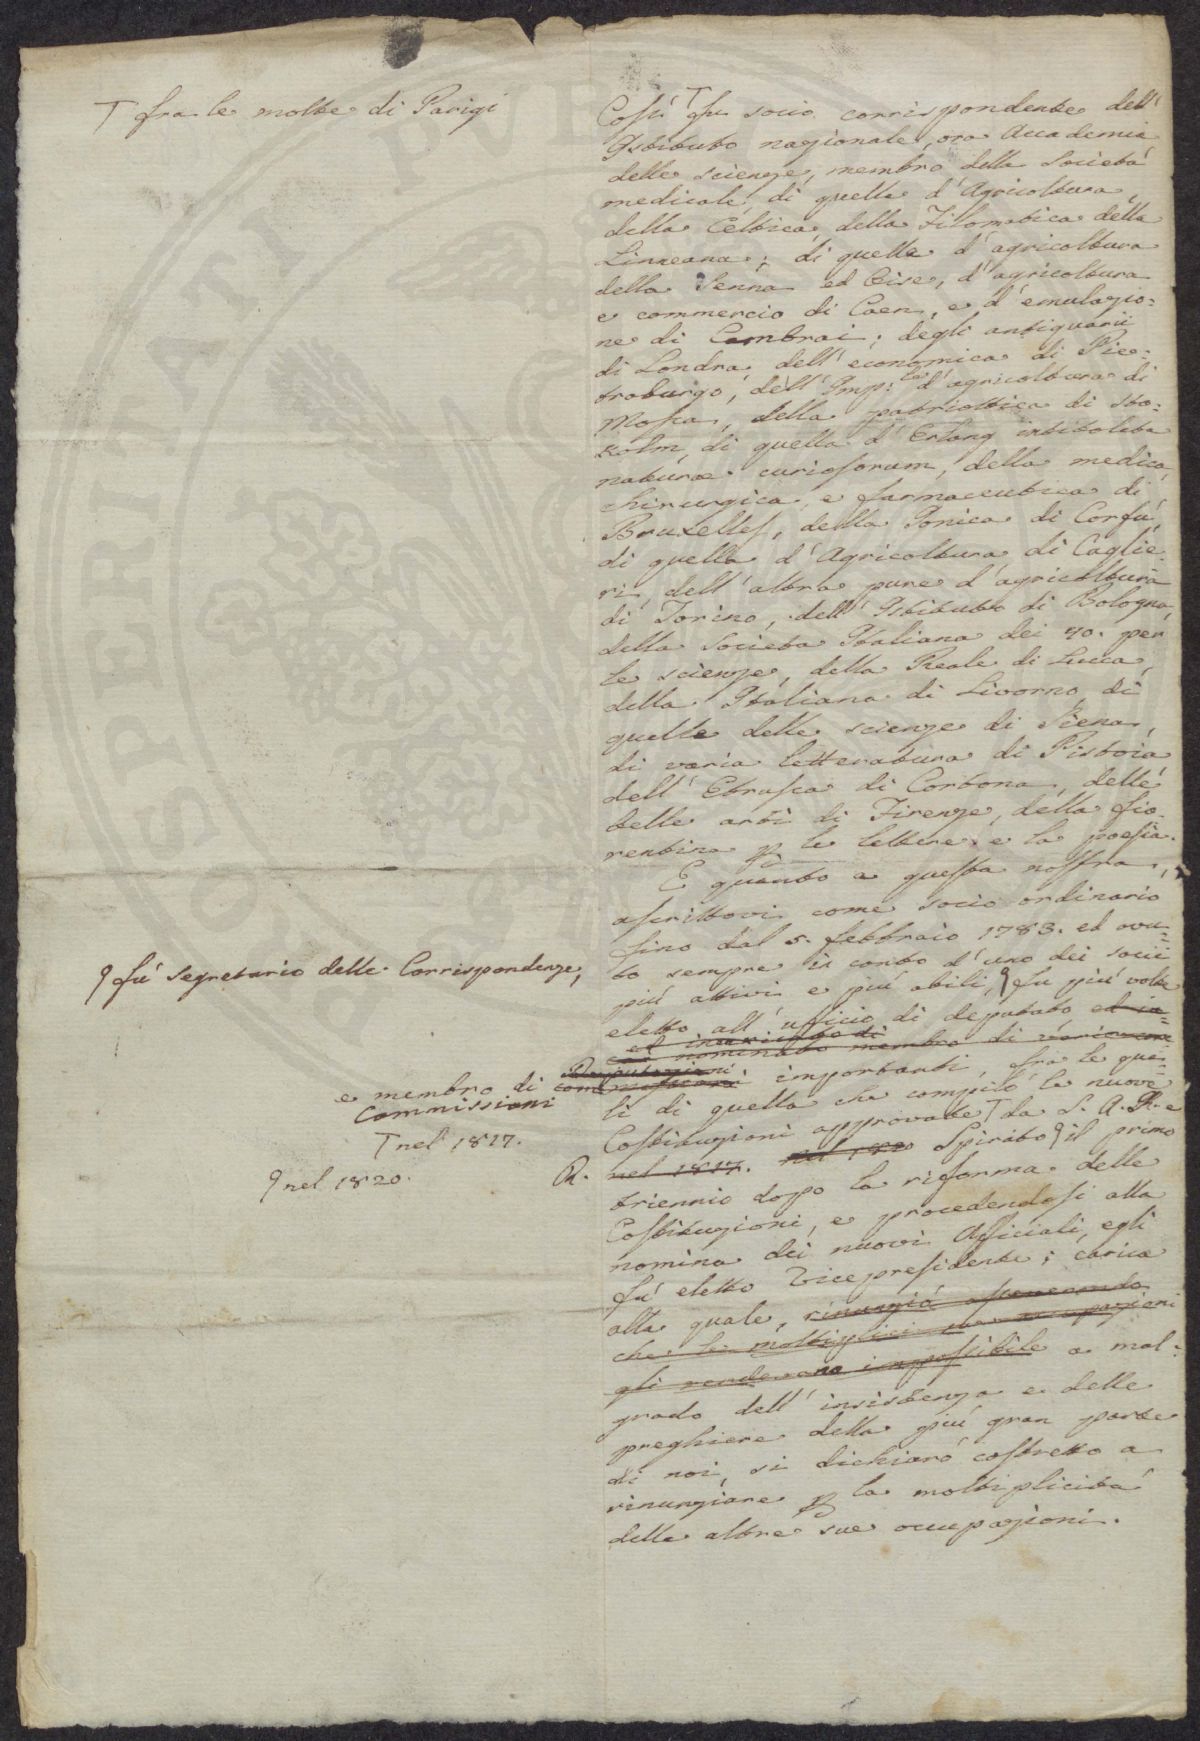 T fra le molte di Parigi
Così T fu socio corrispondente dell'
Istituto nazionale, ora Accademia
delle scienze, membro della Società
medicale, di quella d'Agricoltura,
della Celtica, della Filomatica della
Linneana; di quella d'agricoltura
della Senna ed Oise, d'agricoltura
e commercio di Caen, e d'emulazio=
ne di Cambrai; degli antiquarii
di Londra, dell'economica di Pie=
troburgo, dell'Imp:le d'agricoltura di
Mosca, della patriottica di Sto=
kolm, di quella d'Erlang intitolata
naturae curiosorum, della medica,
chirurgica, e farmaceutica di
Bruxelles, della Jonica di Corfù,
di quella d'Agricoltura di Caglie=
ri, dell'altra pure d'agricoltura
di Torino, dell'Istituto di Bologna,
della Società Italiana dei 40. per
le scienze, della Reale di Lucca,
della Italiana di Livorno, di
quella delle scienze di Siena,
di varia letteratura di Pistoia
dell'Etrusca di Cortona, delle
belle arti di Firenze, della fio=
rentina p le lettere e la poesia.
E quanto a questa nostra,
ascrittovi come socio ordinario
fino dal 5. febbraio 1783. ed avu=
to sempre in conto d'uno dei socii
più attivi e più abili, ꟼ fu più volte
ꟼ fù segretario delle Corrispondenze,
eletto all'uficio di deputato ed in=
ed incaricato di
nominato membro di varie
Deputazioni
e membro di commissioni importanti, fra le qua=
Commissioni
li di quella che compilò le nuove
Costituzioni approvate T da S. A. R. e
T nel 1817.
R. nel 1817. nel 1820 Spirato ꟼ il primo
ꟼ nel 1820.
triennio dopo la riforma delle
Costituzioni, e procedendosi alla
nomina dei nuovi Officiali, egli
fù eletto Vicepresidente; carica
alla quale, rinunziò asserendo
che le moltiplici sue occupazioni
gli rendevano impossibile a mal=
grado dell'insistenza e delle
preghiere della più gran parte
di noi, si dichiarò costretto a
rinunziare p la moltiplicità
delle altre sue occupazioni.